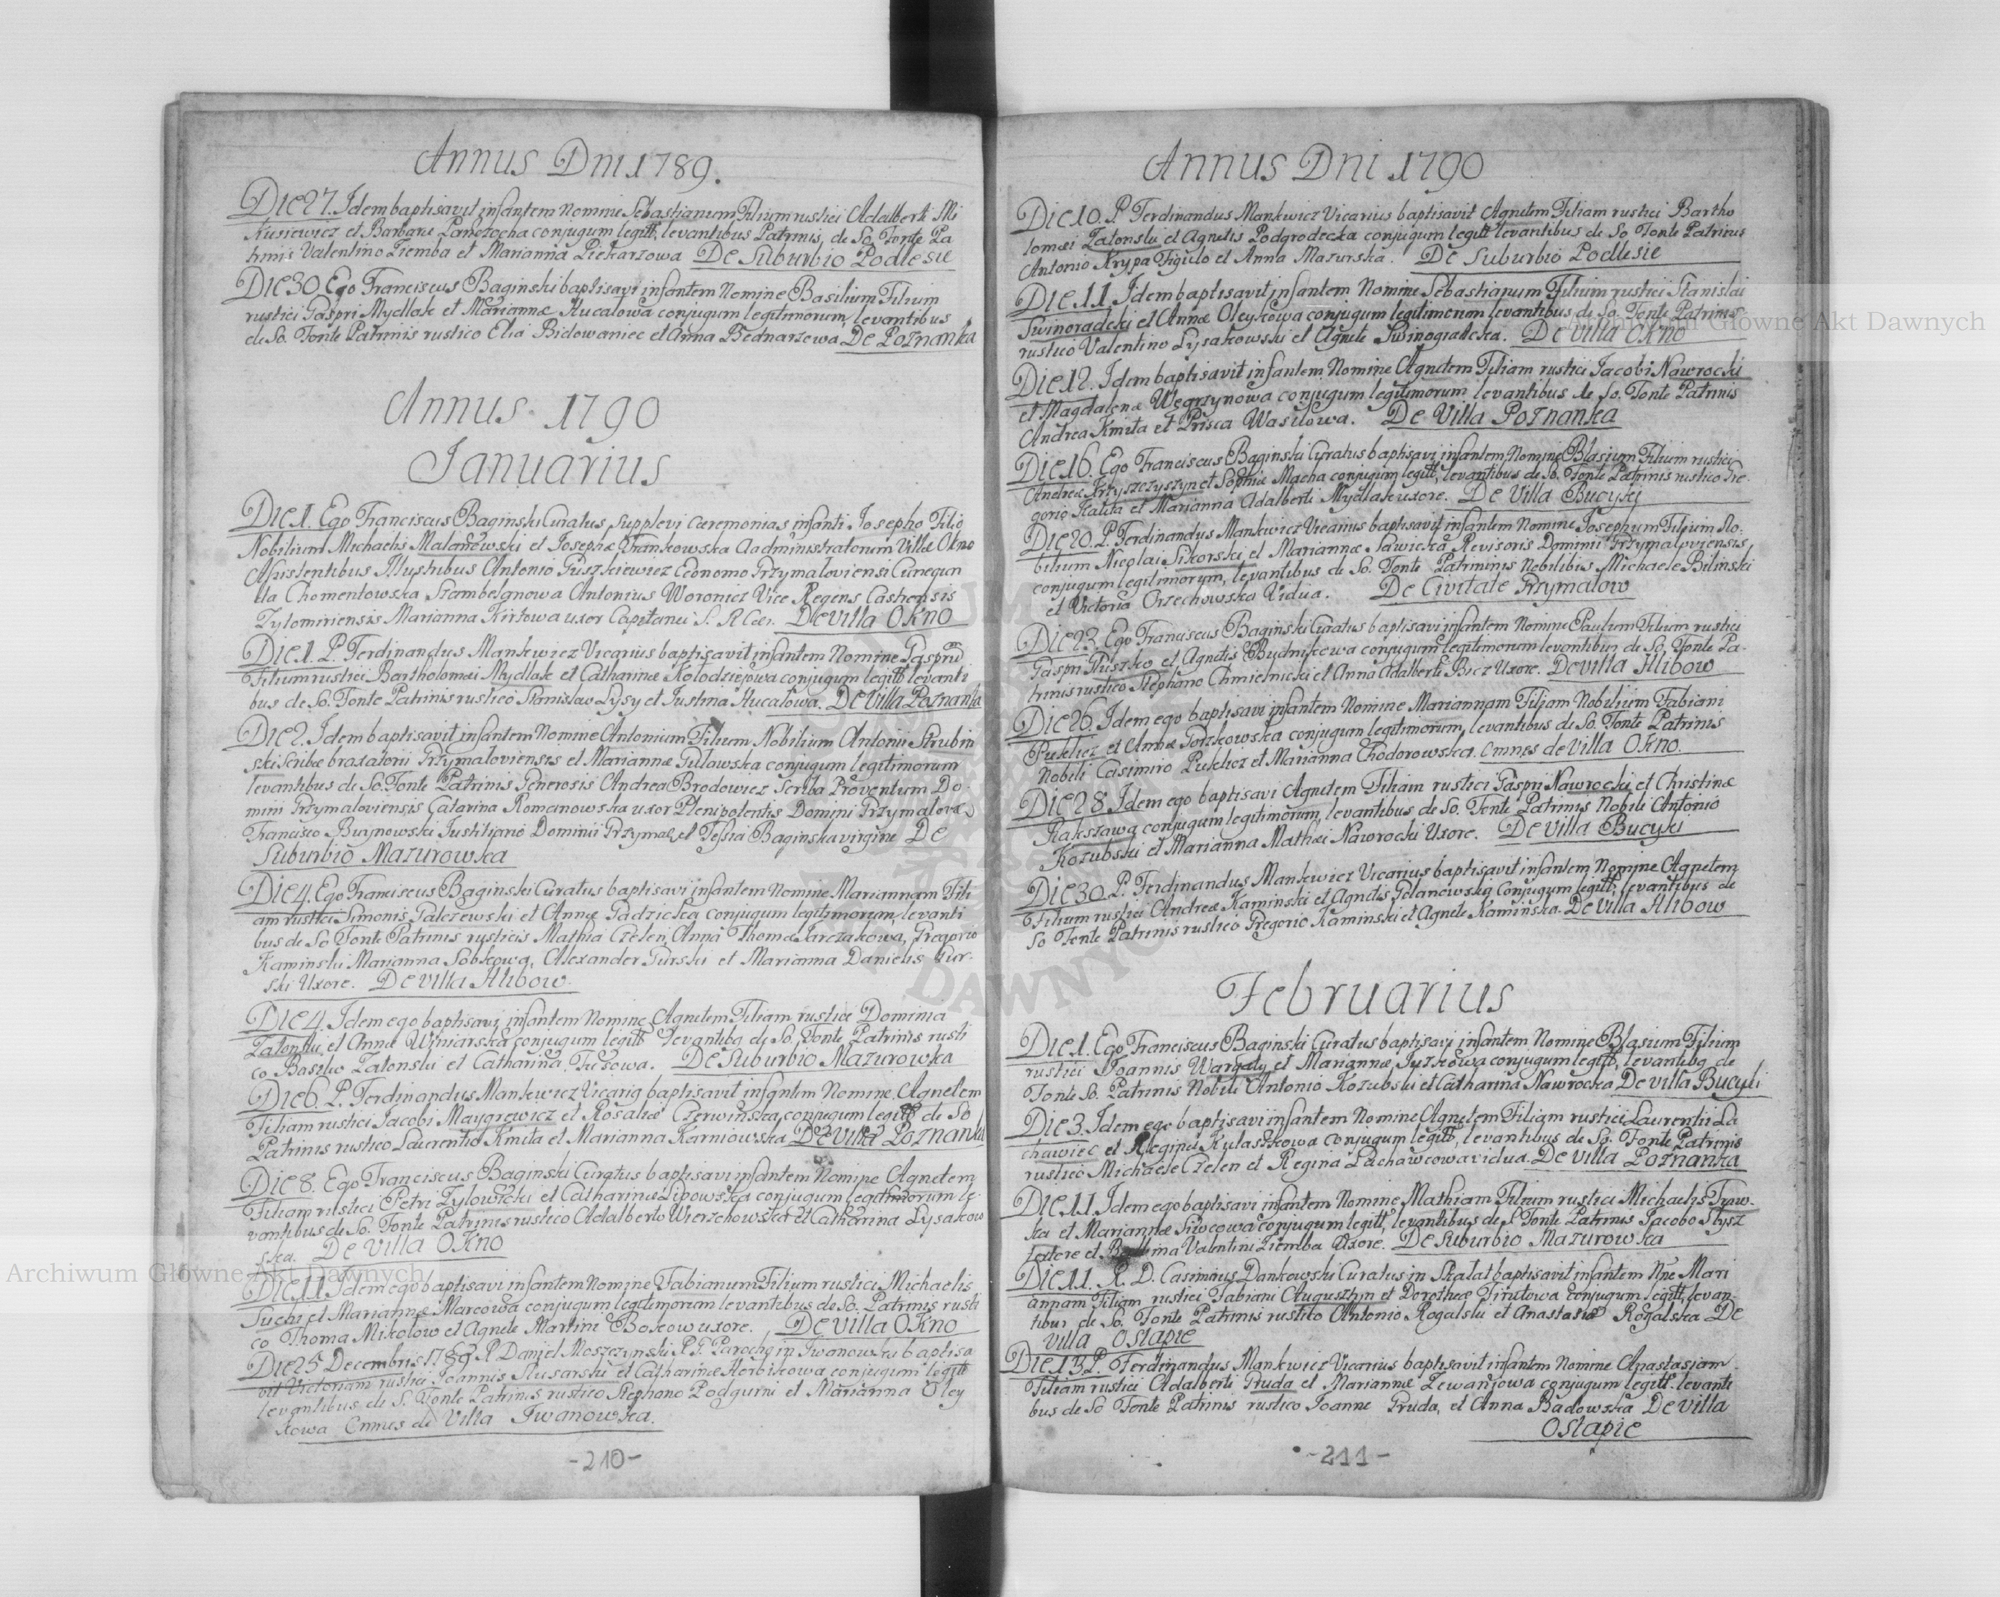 Annus Dni 1789.
Die 27. Idem baptisavit infantem Nomine Sebastianum Filium rustici Adalberti Mi
kusiewicz et Barbarae conjugum legitt, levantibus Patrinis, de So. Fonte Pa
trinis Valentino Ziemba et Marianna Piekarzowa De Suburbio Podlesie
Die 30 Ego Franciscus Baginski baptisavi infantem Nomine Basilium Filium
rustici Gaspri Mydlak et Mariannæ Hucalowa conjugum legitimorum, levantibus
de So. Fonte Patrinis rustico Elia Bidowaniec et Anna Bednarzewa, De Poznanka
Annus 1790
Januarius
Die 1. Ego Franciscus Baginski Curatus Supplevi Ceremonias infanti Josepho Filio
Nobilium Michaelis Malanowski et Josephæ Frankowska Aadministratorum Villæ Okno
Assistentibus Illustribus Antonio Guszkiewicz Economo Grzymaloviensi Cunegun
da Chomentowska Antonius Woronicz Vice Regens Castrensis
Zytomiriensis Marianna uxor Capitanei S. R. De villa Okno
Die 1. P. Ferdinandus Mankwicz Vicarius baptisavit infantem Nomine Gasprum
Filium rustici Bartholomæi Mydlak et Catharinæ Kolodziejowa conjugum legitt levanti
bus de So. Fonte Patrinis rustico Stanislaw Lysy et Justina Hucalowa. De Villa Poznanka
Die 2. Idem baptisavit infantem Nomine Antonium Filium Nobilium Antonii Strubin
ski Scribæ braxatorii Grzymaloviensis et Mariannæ Gulawska conjugum legitimorum
levantibus de So. Fonte Patrinis Generosis Andrea Brodowicz Scriba Proventum Do
mini Grzymaloviensis Catarina Romanowska uxor Plenipotentis Domini Grzymalovæ
Francisco Buynowski Justitiario Dominii Grzymal, et Tessia Baginska virgine De
Suburbio Mazurowka
Die 4. Ego Franciscus Baginski Curatus baptisavi infantem Nomine Mariannam Fili
am rustici Simonis Galczewski et Annæ Gadzicka conjugum legitimorum, levanti
bus de So Fonte Patrinis rusticis Mathia Czelen, Anna Thomæ Jarczakowa, Gregorio
Kaminski Marianna Sobkowa, Alexander Gurski et Marianna Danielis Gur-
ski Uxore. De villa Hlibow.
Die 4. Idem ego baptisavi infantem Nomine Agnetem Filiam rustici Dominici
Zalonski, et Annæ Winiarska conjugum legitt levantibq de So. Fonte Patrinis rusti
co Baszko Zalonski et Catharina De Suburbio Mazurowka
Die 6. P. Ferdinandus Mankwicz Vicariq baptisavit infantem Nomine Agnetem
Filiam rustici Jacobi Maygrewicz et Rosaliæ Czerwinska conjugum legitt de So
Patrinis rustico Laurentio Kmita et Marianna Karniowska De villa Poznanka
Die 8. Ego Franciscus Baginski Curatus baptisavi infantem Nomine Agnetem
Filiam rustici Petri Zylowicki et Catharinæ Lipowska conjugum legitimorum le-
vantibus de So. Fonte Patrinis rustico Adalberto Wierzchowska et Catharina Lysakow
ska. De Villa Okno
Die 11 Idem ego baptisavi infantem Nomine Fabianum Filium rustici Michaelis
Suchi et Mariannæ Marcowa conjugum legitimorum levantibus de So. Patrinis rusti
co Thoma Mikolow et Agnete Martini Boskow uxore. De villa Okno
Die 25 Decembris 1789 P. Daniel Moszczynski Parochq in Iwanowki baptisa
vit Victoriam rustici Joannis Slusarski et Catharinæ Horbikowa conjugum legitt
levantibus de S. Fonte Patrinis rustico Stephano Podgurni et Marianna Oley
kowa Omnes de Villa Iwanowka.
-210-
Annus Dni 1790
Die 10. P. Ferdinandus Mankwicz Vicarius baptisavit Agnetem Filiam rustici Bartho
lomæi Zatonski et Agnetis Podgrodecka conjugum legitt levantibus de So. Fonte Patrinis
Antonio Krypa Figulo et Anna Mazurska. De Suburbio Podlesie
Die 11. Idem baptisavit infantem Nomine Sebastianum Filium rustici Stanislai
Swinoradzki et Annæ Oleykowa conjugum legitimorum levantibus de So. Fonte Patrinis
rustico Valentino Lysakowski et Agnete Swinogradzka. De Villa Okno
Die 12. Idem baptisavit infantem Nomine Agnetem Filiam rustici Jacobi Nawrocki
et Magdalenæ Węgrzynowa conjugum legitimorum levantibus de So. Fonte Patrinis
Andrea Kmita et Prisca Wasilowa. De Villa Poznanka
Die 16. Ego Franciscus Baginski Curatus baptisavi infantem Nomine Blasium Filium rustici
Andreæ Krzyszczyszyn et Sophiæ Macha conjugum legitt, levantibus de So. Fonte Patrinis rustico Gre-
gorio Kalita et Marianna Adalberti Mydlak uxore. De Villa Bucyki
Die 20. P. Ferdinandus Mankwicz Vicarius baptisavit infantem Nomine Josephum Filium No-
bilium Nicolai Sikorski et Mariannæ Sawicka Revisoris Dominii Grzymaloviensis,
conjugum legitimorum, levantibus de So. Fonte Patrininis Nobilibus Michaele Bilinski
et Victoria Orzechowska Vidua. De Civitate Grzymalow
Die 23. Ego Franciscus Baginski Curatus baptisavi infantem Nomine Paulum Filium rustici
Gaspri Gluszko et Agnetis Budnikowa conjugum legitimorum levantibus de So. Fonte Pa-
trinis rustico Stephano Chmielnicki et Anna Adalberti Bicz Uxore. De Villa Hlibow
Die 26. Idem ego baptisavi infantem Nomine Mariannam Filiam Nobilium Fabiani
Puklicz et Annæ Gorzkowska conjugum legitimorum, levantibus de So. Fonte Patrinis
Nobili Casimiro Puklicz et Marianna Chodorowska. Omnes de Villa Okno.
Die 28. Idem ego baptisavi Agnetem Filiam rustici Gaspri Nawrocki et Christinæ
Kakszawa conjugum legitimorum, levantibus de So. Fonte Patrinis Nobili Antonio
Kozubski et Marianna Mathæi Nawrocki Uxore. De Villa Bucyki
Die 30. P. Ferdinandus Mankwicz Vicarius baptisavit infantem Nomine Agnetem
Filium rustici Andreæ Kaminski et Agnetis Golanowska Conjugum legitt, levantibus de
So Fonte Patrinis rustico Gregorio Kaminski et Agnete Kaminska. De Villa Hlibow
Februarius
Die 1. Ego Franciscus Baginski Curatus baptisavi infantem Nomine Blasium Filium
rustici Joannis Wargaty et Mariannæ Juzkowa conjugum legitt, levantibq de
Fonte So. Patrinis Nobili Antonio Kozubski et Catharina Nawrocka De villa Bucyki
Die 3. Idem ego baptisavi infantem Nomine Agnetem Filiam rustici Laurentii La
chawiec et Reginæ Kulaszkowa conjugum legitt, levantibus de So. Fonte Patrinis
rustico Michaele Czelen et Regina Lachawcowa vidua. De villa Poznanka
Die 11. Idem ego baptisavi infantem Nomine Mathiam Filium rustici Michaelis Traw-
ka et Mariannæ Sirocowa conjugum legitt, levantibus de S. Fonte Patrinis Jacobo Slysz
textore et Valentini Ziemba Uxore. De Suburbio Mazurowka
Die 11. R. D. Casimirus Dankowski Curatus in Skalat baptisavit infantem Nne Mari
annam Filiam rustici Fabiani Augusthyn et Dorotheæ Firutowa conjugum legitt, levan-
tibus de So. Fonte Patrinis rustico Antonio Rogalski et Anastasia Rogalska De
Villa Ostapie
Die 13 P. Ferdinandus Mankwicz Vicarius baptisavit infantem Nomine Anastasiam
Filiam rustici Adalberti Gruda et Mariannæ Lewanjowa conjugum legitt. levanti
bus de So Fonte Patrinis rustico Joanne Gruda, et Anna Badowska De villa
Ostapie
-211-
Archiwum Główne Akt Dawnych
Archiwum Główne Akt Dawnych
Archiwum Główne Akt Dawnych